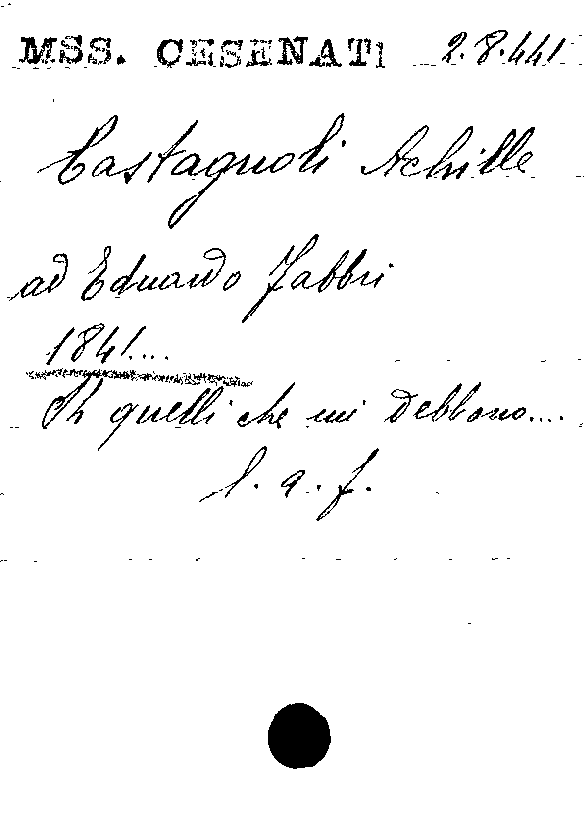 MSS. CESENATI 2.8.441
Castagnoli Achille
ad Eduardo Fabbri
1841....
quelli che mi debbono....
l. a. f.